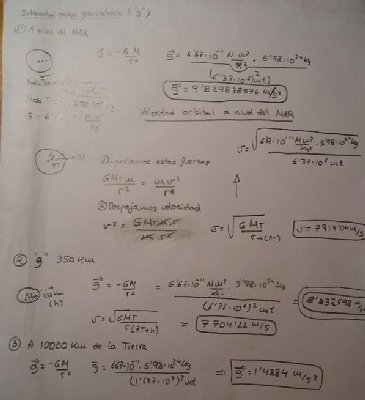 Intensidad campo gravitatorio ("g")
① A nivel del MAR
g = -GM/r² g = 6'67·10⁻¹¹ N·m²/kg² · 5'98·10²⁴ kg / (6'37·10⁶)² m²
g = 9'829838596 m/s²
Velocidad orbital a nivel del MAR
① Igualamos estas fuerzas
v = √(6'67·10⁻¹¹ N·m²/kg² · 5'98·10²⁴ kg / 6'37·10⁶ mt)
GMT·m/r² = m v²/r
② Despejamos velocidad
v² = GMT·m·r / m·r² v = √(GMT / r) v = 7913'04 m/s
② g 350 Km
g = -GM/r² = 6'67·10⁻¹¹ N·m²/kg² · 5'98·10²⁴ kg / (6'72·10⁶)² mt = 8'832598 m/s²
v = √(GMT / r(RT+h)) = 7704'22 m/s
③ A 10000 Km de la Tierra
g = -GM/r² g = 6'67·10⁻¹¹ · 5'98·10²⁴ kg / (1'637·10⁷)² mt ⇒ g = 1'4884 m/s²